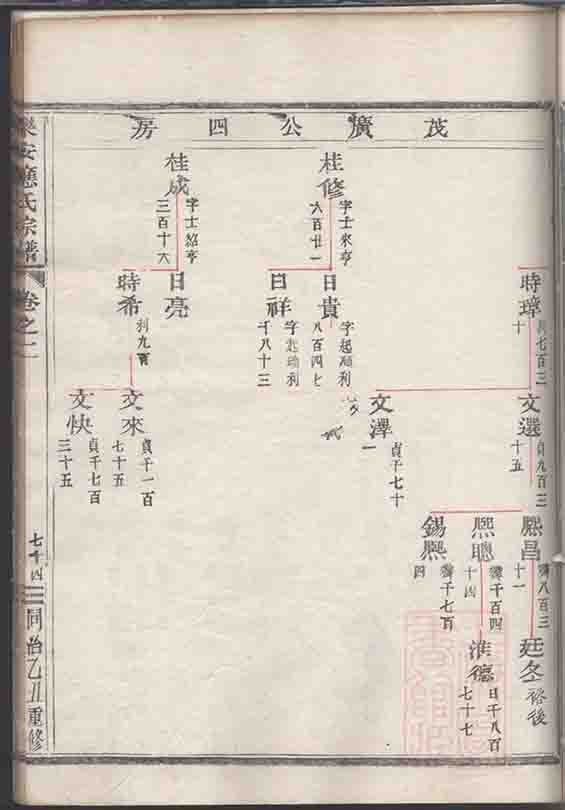 茂廣公四房
時璋
利七百三
十
文選
貞九百三
十五
熙昌
八百三
十一
廷冬
裕後
熙聰
千百四
十四
淮德
日千八百
七十七
錫熙
千七百
四
文澤
貞千七十
一
桂修
字士來亨
六百廿一
日貴
字起順利
八百四七
日祥
千八十三
桂成
字士紹亨
三百十六
日亮
時希
利九百
文來
貞千一百
七十五
文快
貞千七百
三十五
樂安應氏宗譜
卷之二
七十四
同治乙丑重修